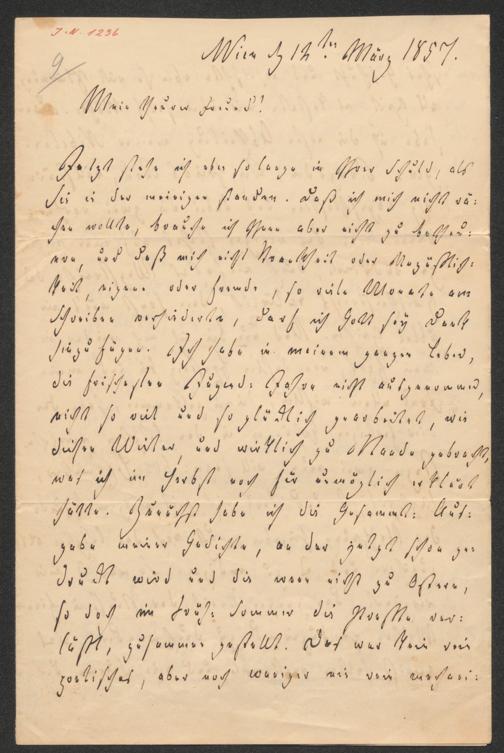 J.N. 1236
9
Wien d 12ten März 1857.
Mein theurer Freund!
Jetzt stehe ich eben so lange in Ihrer Schuld, als
Sie in der meinigen standen. Daß ich mich nicht rä-
chen wollte, brauche ich Ihnen aber nicht zu betheu-
ern, und daß mich nicht Krankheit oder Unpäßlich-
keit, eigene oder fremde, so viele Monate am
Schreiben verhinderte, darf ich Gott sey Dank
hinzufügen. Ich habe in meinem ganzen Leben,
die frischesten Jugend-Jahre nicht ausgenommen,
nicht so viel und so glücklich gearbeitet, wie
diesen Winter, und wirklich zu Stande gebracht,
was ich im Herbst noch für unmöglich erklärt
hätte. Zunächst habe ich die Gesammt-Aus-
gabe meiner Gedichte, an der jetzt schon ge-
druckt wird und die wenn nicht zu Ostern,
so doch im Früh-Sommer die Presse ver-
läßt, zusammen gestellt. Das war kein rein
poetisches, aber noch weniger ein rein mechani-